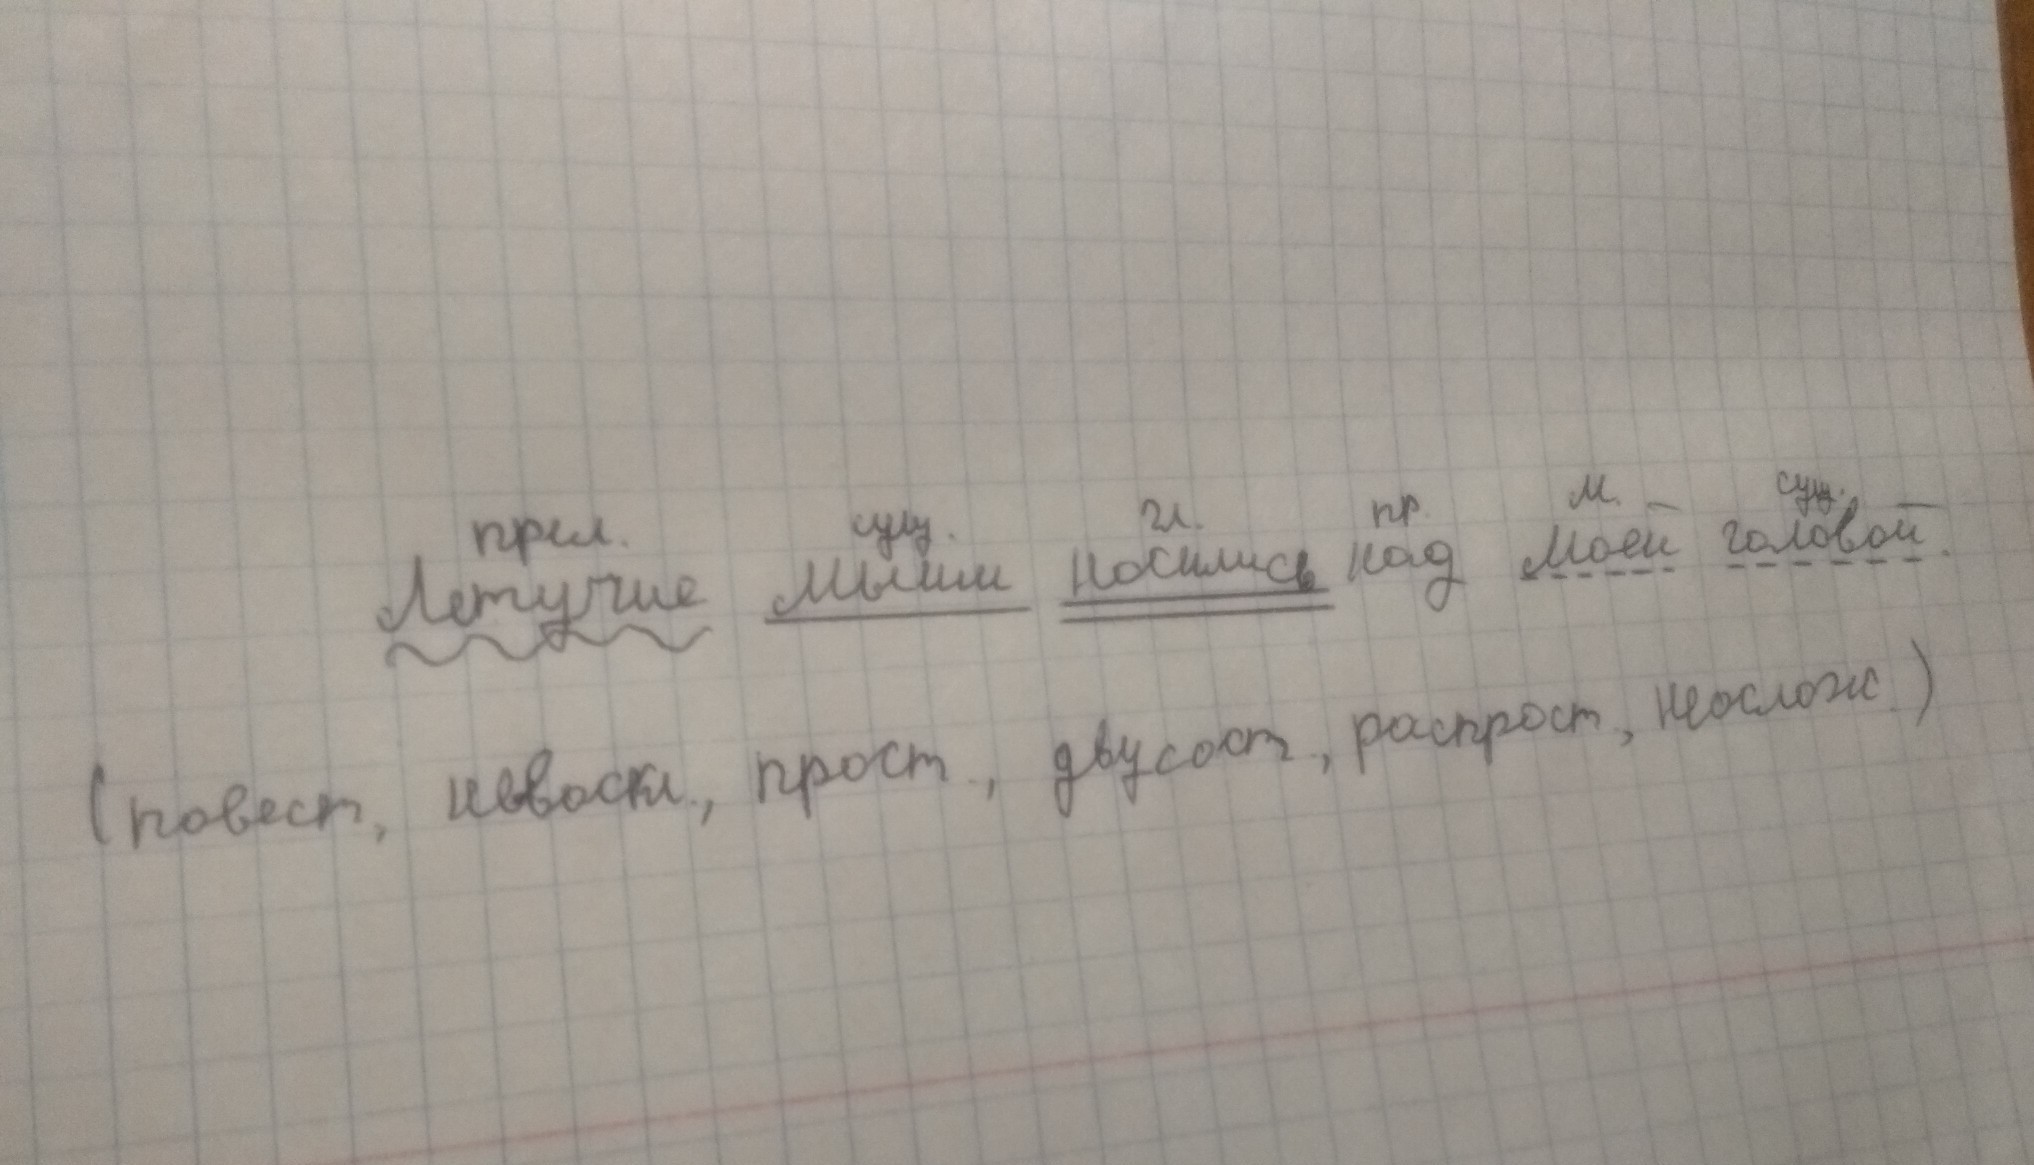 прил. сущ. гл. пр. м. сущ.
Летучие мыши носились над моей головой.
(повест, невоскл., прост., двусост., распрост., неослож.)